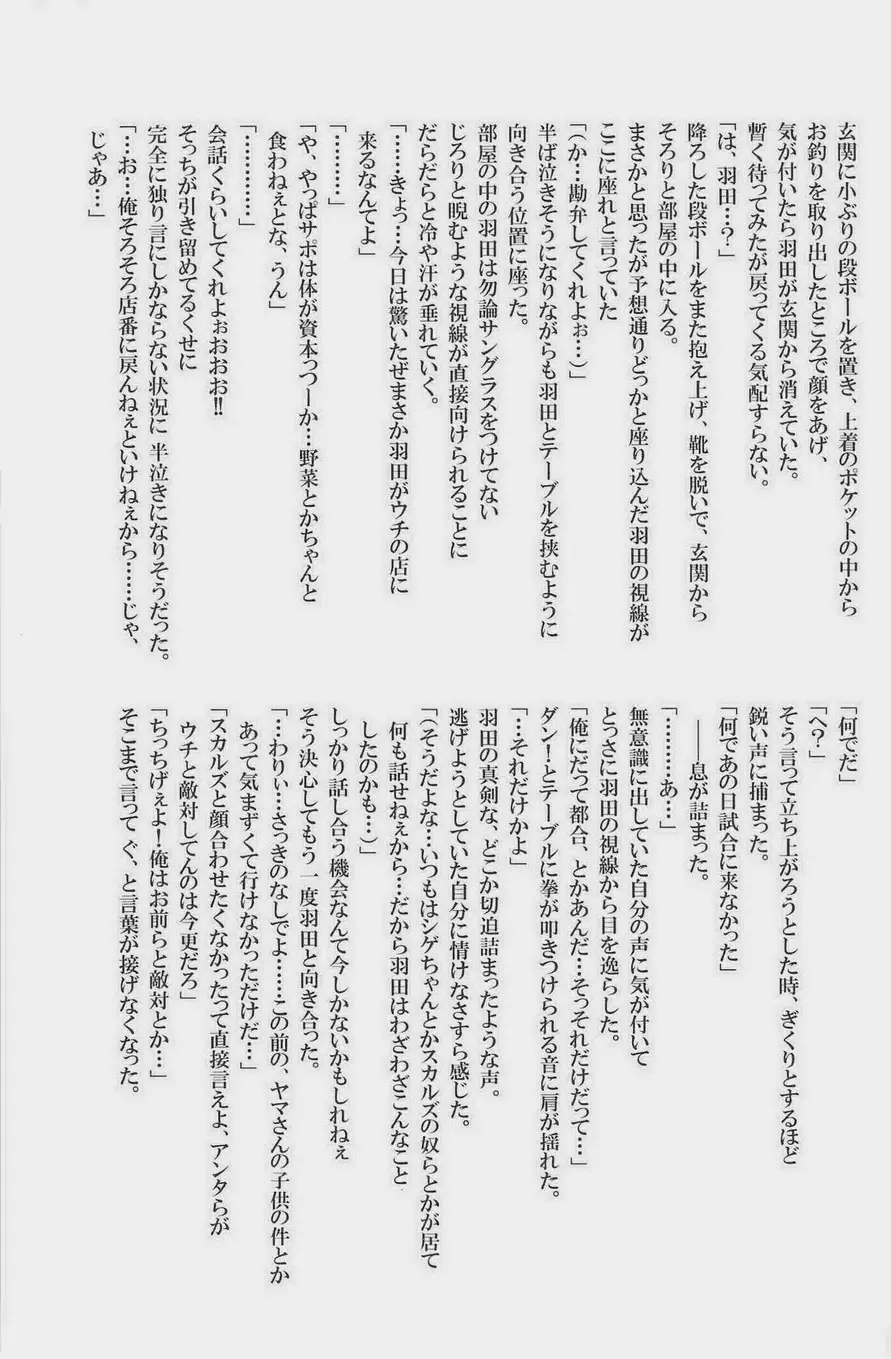 玄関に小ぶりの段ボールを置き、上着のポケットの中から
お釣りを取り出したところで顔をあげ、
気が付いたら羽田が玄関から消えていた。
暫く待ってみたが戻ってくる気配すらない。
「は、羽田…？」
降ろした段ボールをまた抱え上げ、靴を脱いで、玄関から
そろりと部屋の中に入る。
まさかと思ったが予想通りどっかと座り込んだ羽田の視線が
ここに座れと言っていた
「(か…勘弁してくれよぉ…)」
半ば泣きそうになりながらも羽田とテーブルを挟むように
向き合う位置に座った。
部屋の中の羽田は勿論サングラスをつけてない
じろりと睨むような視線が直接向けられることに
だらだらと冷や汗が垂れていく。
「……きょっ…今日は驚いたぜまさか羽田がウチの店に
来るなんてよ」
「…………」
「や、やっぱサポは体が資本っつーか…野菜とかちゃんと
食わねぇとな、うん」
「…………」
会話くらいしてくれよぉおおお!!
そっちが引き留めてるくせに
完全に独り言にしかならない状況に 半泣きになりそうだった。
「…お…俺そろそろ店番に戻んねぇといけねぇから……じゃ、
じゃあ…」
「何でだ」
「へ？」
そう言って立ち上がろうとした時、ぎくりとするほど
鋭い声に捕まった。
「何であの日試合に来なかった」
――息が詰まった。
「…………あ…」
無意識に出していた自分の声に気が付いて
とっさに羽田の視線から目を逸らした。
「俺にだって都合、とかあんだ…そっそれだけだって…」
ダン！とテーブルに拳が叩きつけられる音に肩が揺れた。
「…それだけかよ」
羽田の真剣な、どこか切迫詰まったような声。
逃げようとしていた自分に情けなさすら感じた。
「(そうだよな…いつもはシゲちゃんとかスカルズの奴らとかが居て
何も話せねぇから…だから羽田はわざわざこんなこと
したのかも…)」
しっかり話し合う機会なんて今しかないかもしれねぇ
そう決心してもう一度羽田と向き合った。
「…わりぃ…さっきのなしでよ……この前の、ヤマさんの子供の件とか
あって気まずくて行けなかっただけだ…」
「スカルズと顔合わせたくなかったって直接言えよ、アンタらが
ウチと敵対してんのは今更だろ」
「ちっちげぇよ！俺はお前らと敵対とか…」
そこまで言って ぐ、と言葉が接げなくなった。